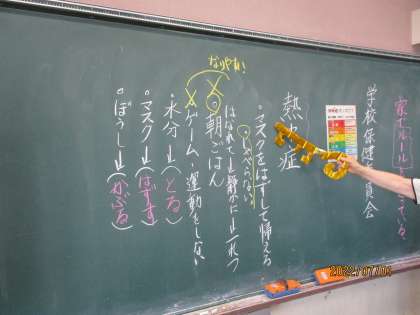 家でルール
学校保健委員会
熱中症
・マスクをはずして帰える
・しゃべらない
はなれて 静かに 一れつ
なりやすい!
朝ごはん
ゲーム・運動をしない
・水分 (とる)
・マスク (はずす)
・ぼうし (かぶる)
2022/07/01